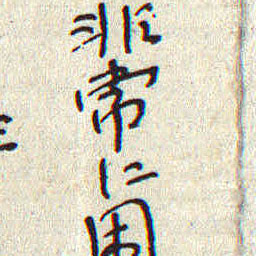 非常に困